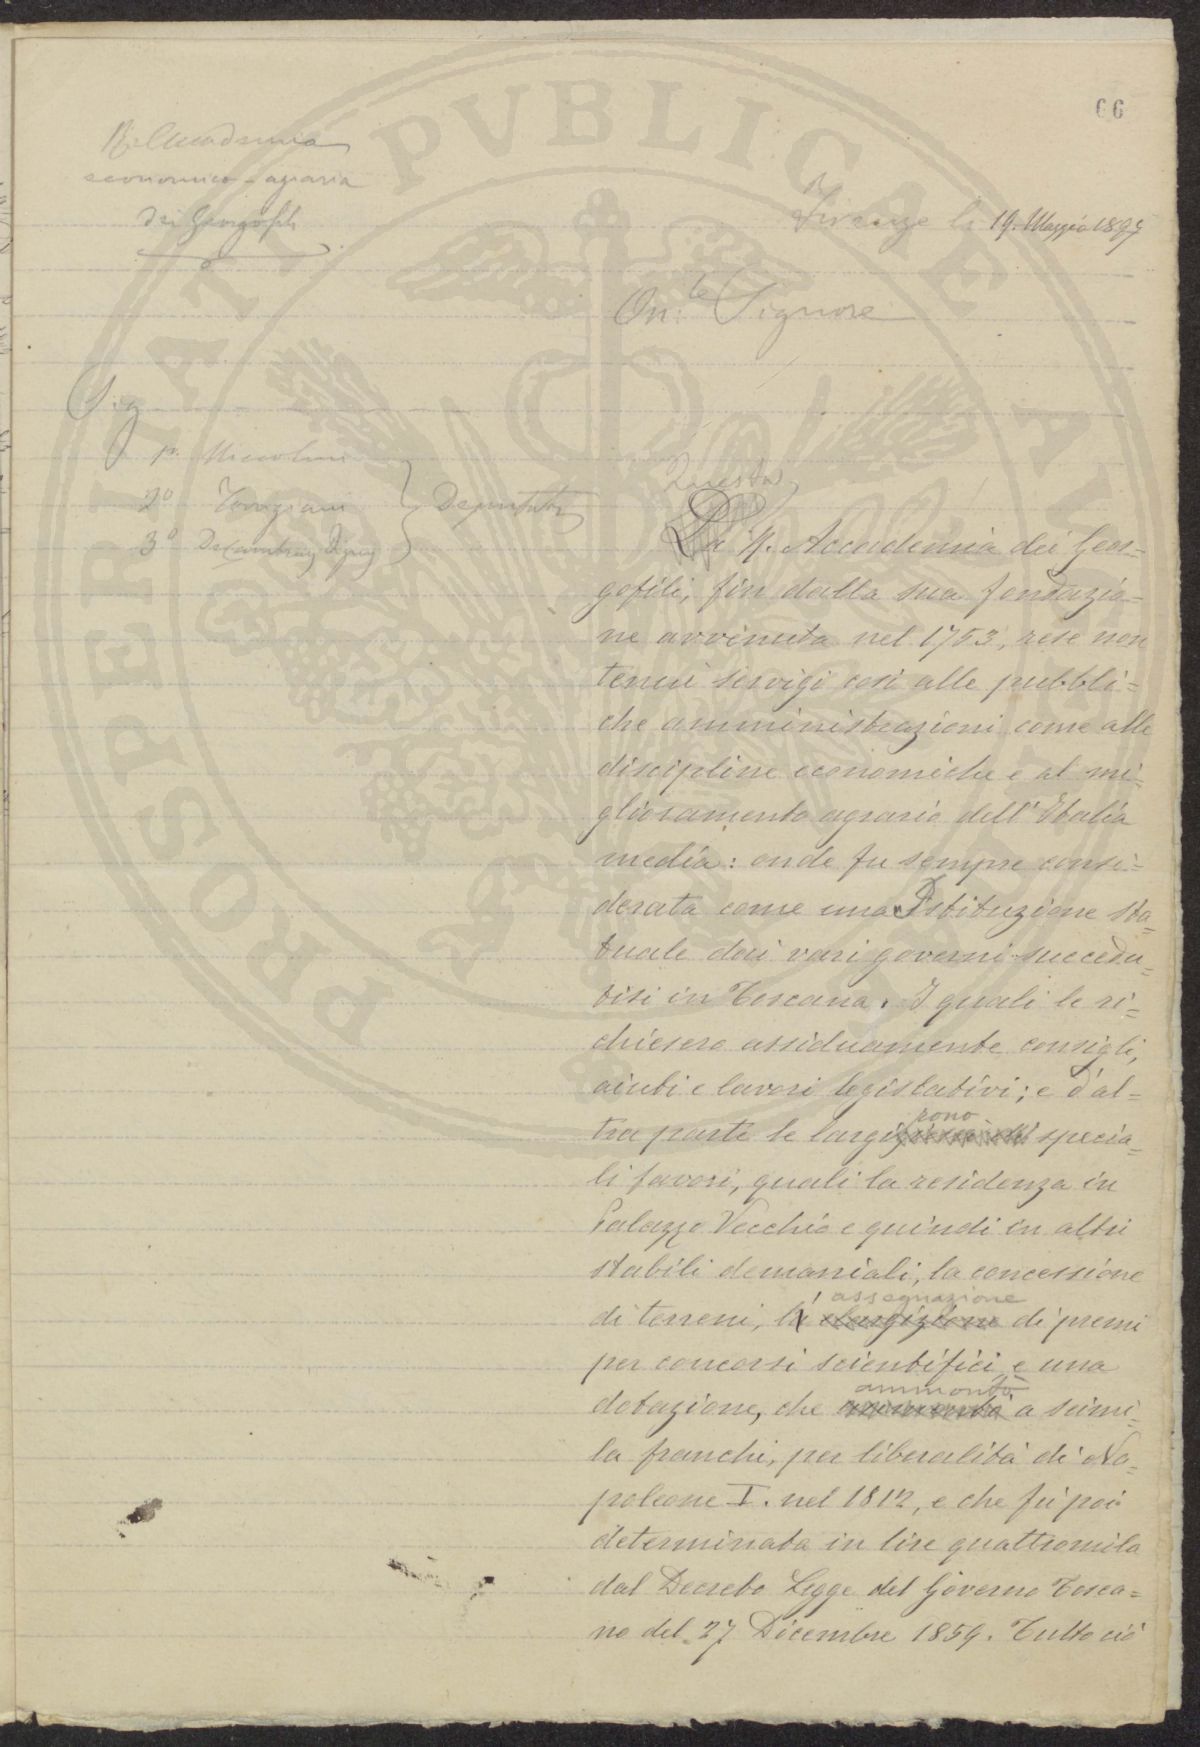 66
R. Accademia
economico-agraria
dei Georgofili
Firenze li 19. Maggio 1897
On.le Signore
Sig
1º Niccolini
2º Torrigiani
3º Decambray Digny
Deputati
Questa
La R. Accademia dei Geor=
gofili, fin dalla sua fondazio=
ne avvenuta nel 1753, rese non
tenui servigi così alle pubbli=
che amministrazioni come alle
discipline economiche e al mi=
glioramento agrario dell'Italia
media: onde fu sempre consi=
derata come una Istituzione sta=
tuale dai vari governi succedu=
tisi in Toscana. I quali le ri=
chiesero assiduamente consigli,
aiuti e lavori legislativi; e d'al=
rono
tra parte le largi specia=
li favori, quali la residenza in
Palazzo Vecchio e quindi in altri
stabili demaniali, la concessione
assegnazione
di terreni, l' elargizione di premi
per concorsi scientifici e una
ammontò
dotazione, che ammontò a seimi=
la franchi, per liberalità di Na=
poleone I. nel 1812, e che fu poi
determinata in lire quattromila
dal Decreto Legge del Governo Tosca=
no del 27 Dicembre 1859. Tutto ciò
PROSPERITATI PVBLICAE AVGENDAE